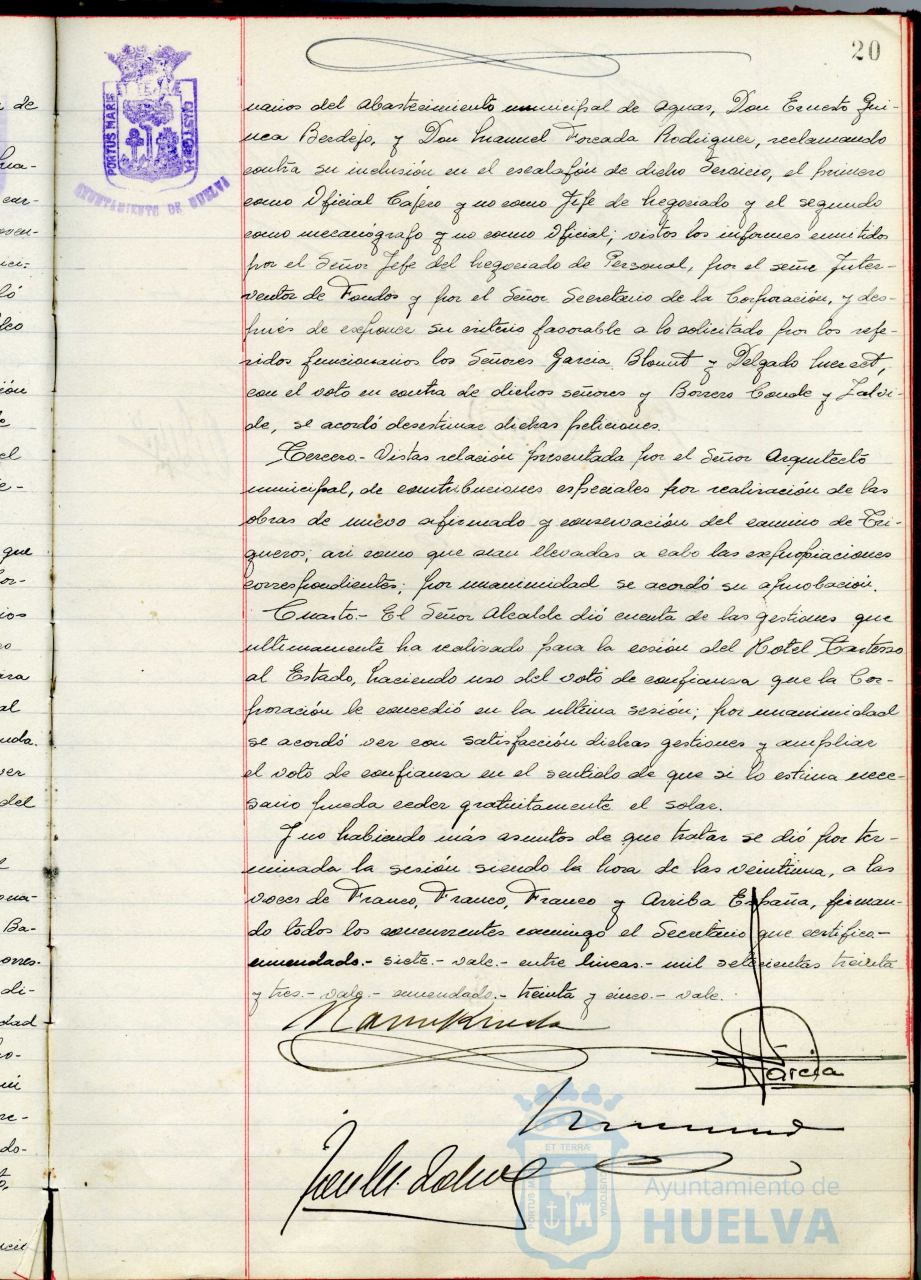 20
ET TERRÆ
PORTUS MARIS
CUSTODIA
AYUNTAMIENTO DE HUELVA
narios del abastecimiento municipal de aguas, Don Ernesto Qui-
nea Berdejo, y Don Manuel Forcada Rodriguez, reclamando
contra su inclusión en el escalafón de dicho Servicio, el primero
como Oficial Cajero y no como Jefe de Negociado y el segundo
como mecanógrafo y no como Oficial; vistos los informes emitidos
por el Señor Jefe del Negociado de Personal, por el señor Inter-
ventor de Fondos y por el Señor Secretario de la Corporación, y des-
pués de exponer su criterio favorable a lo solicitado por los refe-
ridos funcionarios los Señores Garcia y Delgado
con el voto en contra de dichos señores y Borrero Conde y Zalvi-
de, se acordó desestimar dichas peticiones.
Tercero.- Vistas relación presentada por el Señor Arquitecto
municipal, de contribuciones especiales por realización de las
obras de nuevo afirmado y conservación del camino de Tri-
gueros; asi como que sean llevadas a cabo las expropiaciones
correspondientes; por unanimidad se acordó su aprobación.
Cuarto.- El Señor Alcalde dió cuenta de las gestiones que
ultimamente ha realizado para la cesión del Hotel Tartesso
al Estado, haciendo uso del voto de confianza que la Cor-
poración le concedió en la ultima sesión; por unanimidad
se acordó ver con satisfacción dichas gestiones y ampliar
el voto de confianza en el sentido de que si lo estima nece-
sario pueda ceder gratuitamente el solar.
Y no habiendo más asuntos de que tratar se dió por ter-
minada la sesión siendo la hora de las veintiuna, a las
voces de Franco, Franco, Franco y Arriba España, firman-
do todos los concurrentes conmigo el Secretario que certifico.-
enmendado.- siete.- vale.- entre lineas.- mil setecientas treinta
y tres.- vale.- enmendado.- treinta y cinco.- vale.
Garcia
ET TERRÆ
PORTUS MARIS
CUSTODIA
Ayuntamiento de
HUELVA